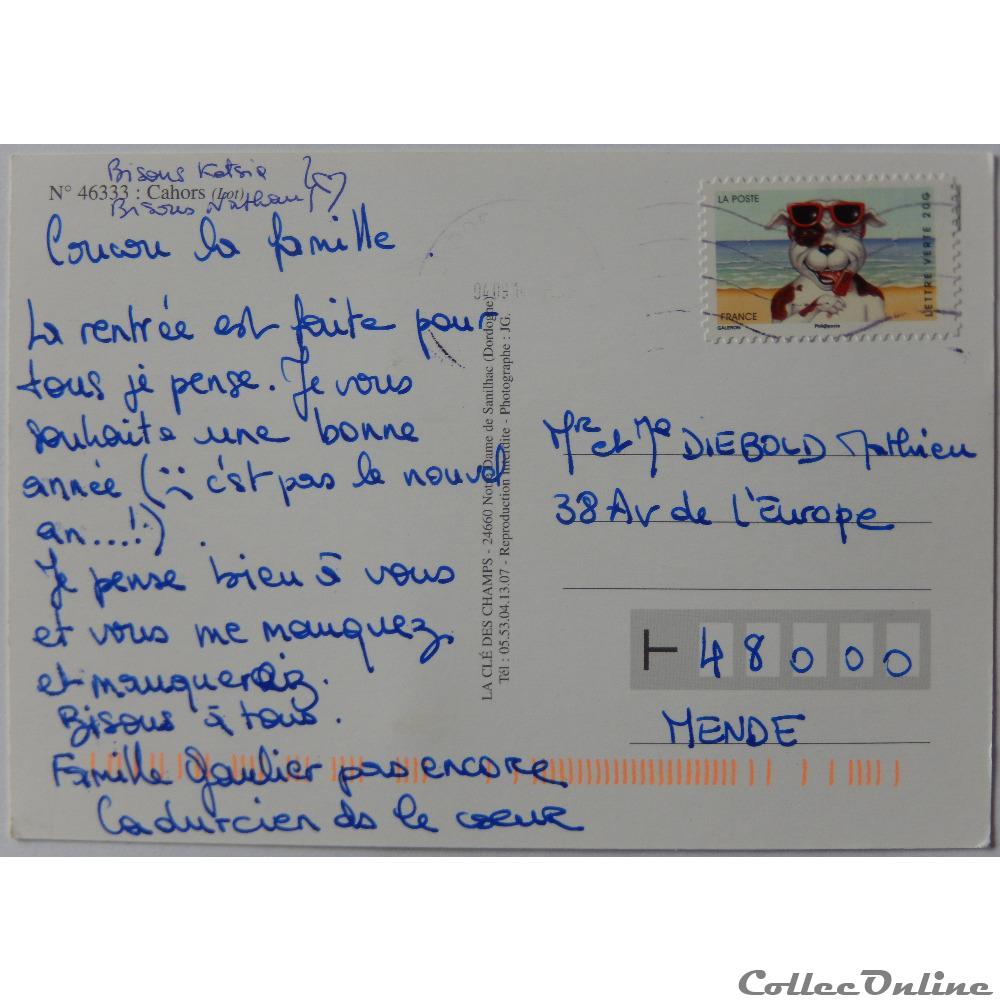 Bisous Katsia
N° 46333 : Cahors (Lot)
Bisous Nathan
Coucou la famille
La rentrée est faite pour
tous je pense. Je vous
souhaite une bonne
année ( c'est pas le nouvel
an....!)
Je pense bien à vous
et vous me manquez,
et manquerez.
Bisous à tous.
Famille Gaulier pas encore
Cadurcien ds le coeur
LA CLÉ DES CHAMPS - 24660 Notre Dame de Sanilhac (Dordogne)
Tél : 05.53.04.13.07 - Reproduction Interdite - Photographe : JG.
LA POSTE
LETTRE VERTE 20G
FRANCE
GALERON
Phil@poste
Mr et Me DIEBOLD Mathieu
38 Av de l'Europe
48000
MENDE
CollecOnline